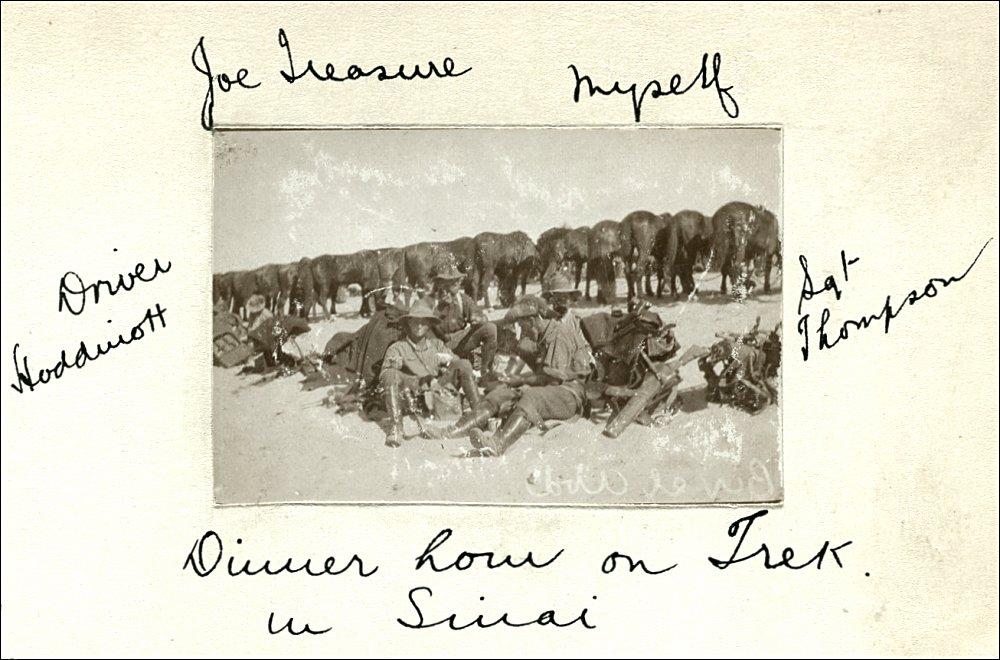 Joe Treasure
Myself
Driver
Hoddinott
Sgt
Thompson
Bir el Abd
Dinner hour on Trek.
in Sinai